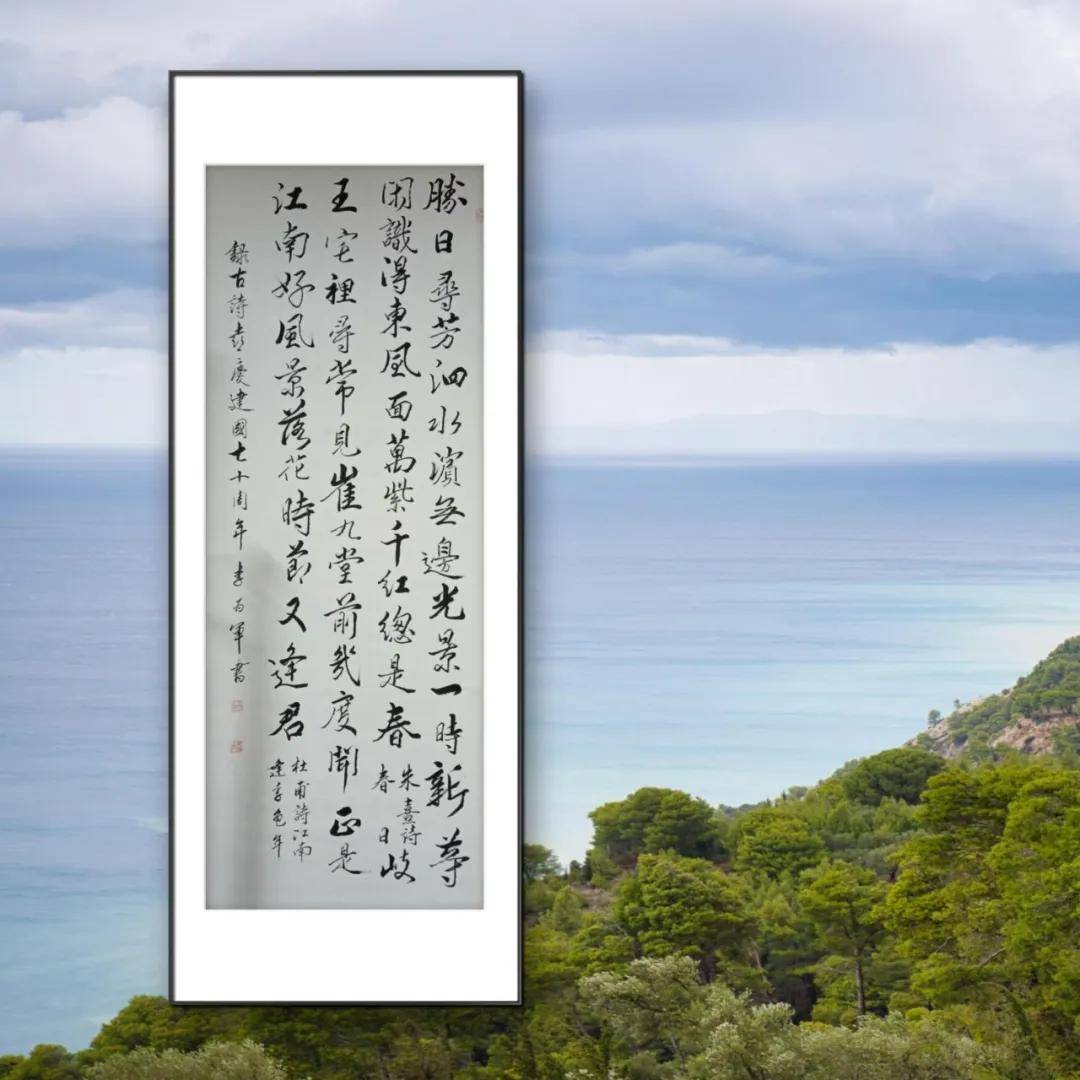 勝日尋芳泗水濱無邊光景一時新等
闲識得東風面萬紫千紅總是春
朱熹诗
春日
岐
王宅裡尋常見崔九堂前幾度聞正是
江南好風景落花時節又逢君
杜甫詩江南
逢李龟年
録古詩喜慶建國七十周年 李为軍書